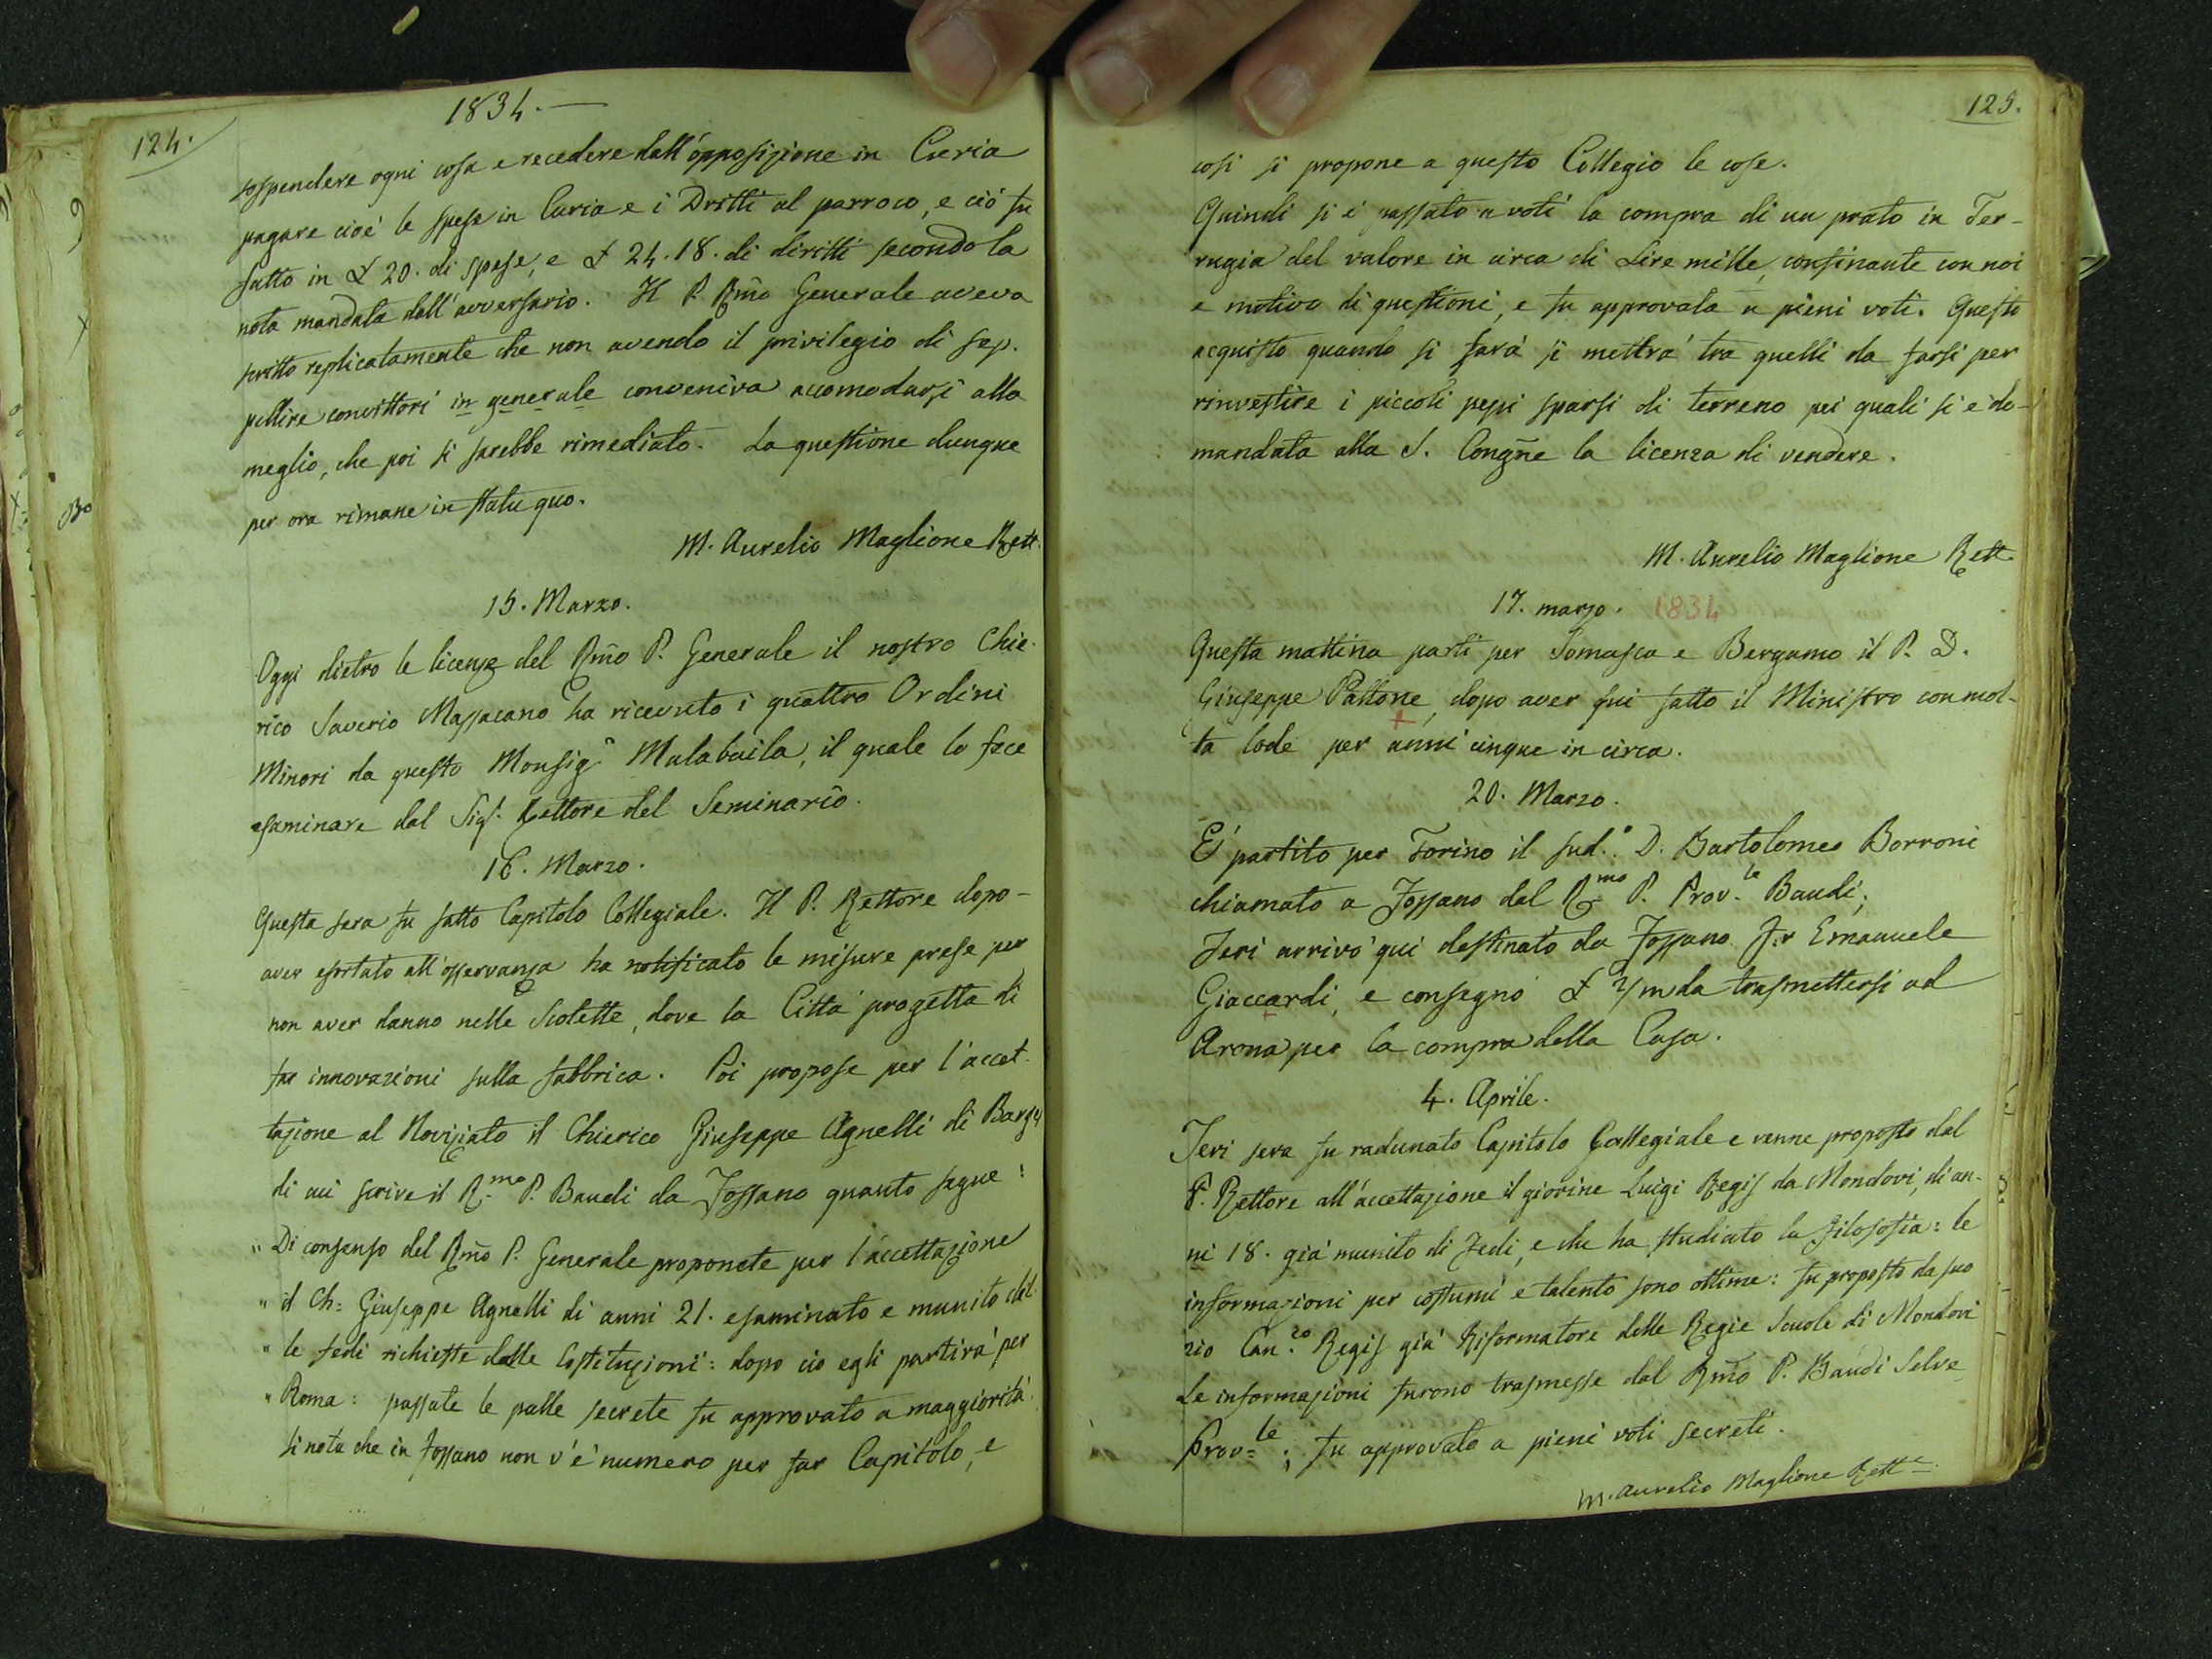 124.
1834.—
sospendere ogni cosa e recedere dall'opposizione in Curia
pagare cioè le spese in Curia e i Dritti al parroco, e ciò fu
fatto in £ 20. di spese, e £ 24.18. di diritti secondo la
nota mandata dall'avversario. Il P. Rmo Generale aveva
scritto replicatamente che non avendo il privilegio di sep.
pellire convittori in generale conveniva accomodarsi alla
meglio, che poi si sarebbe rimediato. La questione dunque
per ora rimane in statu quo.
M. Aurelio Maglione Rett.
15. Marzo.
Oggi dietro le licenze del Rmo P. Generale il nostro Chie-
rico Saverio Massacano ha ricevuto i quattro Ordini
Minori da questo Monsigr Malabaila, il quale lo fece
esaminare dal Sigr. Rettore del Seminario.
16. Marzo.
Questa sera fu fatto Capitolo Collegiale. Il P. Rettore dopo-
aver esortato all'osservanza ha notificato le misure prese per
non aver danno nelle Scolette, dove la Città progetta di
far innovazioni sulla fabbrica. Poi propose per l'accet-
tazione al Noviziato il Chierico Giuseppe Agnelli di Barge
di cui scrive il R.mo P. Baudi da Fossano quanto segue:
" Di consenso del Rmo P. Generale proponete per l'accettazione
" il Ch: Giuseppe Agnelli di anni 21. esaminato e munito del-
" le fedi richieste dalle Costituzioni: dopo ciò egli partirà per
" Roma: passate le palle secrete fu approvato a maggiorità.
si nota che in Fossano non v'è numero per far Capitolo, e
125.
così si propone a questo Collegio le cose.
Quindi si è passato a voti la compra di un prato in Ter-
rugia del valore in circa di Lire mille, confinante con noi
e motivo di questioni, e fu approvata a pieni voti. Questo
acquisto quando si farà si mettrà tra quelli da farsi per
rinvestire i piccoli pezzi sparsi di terreno pei quali si è do-
mandata alla S. Congne la licenza di vendere.
M. Aurelio Maglione Rett.
17. marzo. 1834
Questa mattina partì per Somasca e Bergamo il P. D.
Giuseppe Pattone, dopo aver qui fatto il Ministro con mol-
ta lode per anni cinque in circa.
20. Marzo.
E' partito per Torino il sud.o D. Bartolomeo Borroni
chiamato a Fossano dal R.mo P. Prov.le Baudi;
Jeri arrivò qui destinato da Fossano Fr Emanuele
Giaccardi, e consegnò £ 2/m da trasmettersi ad
Arona per la compra della Casa.
4. Aprile.
Jeri sera fu radunato Capitolo Collegiale e venne proposto dal
P. Rettore all'accettazione il giovine Luigi Regis da Mondovi, di an-
ni 18. già munito di Fedi, e che ha studiato la filosofia: le
informazioni per costumi e talento sono ottime: fu proposto da suo
zio Can.co Regis già Riformatore delle Regie Scuole di Mondovi
Le informazioni furono trasmesse dal Rmo P. Baudi Selve
Prov.le; fu approvato a pieni voti secreti.
M. Aurelio Maglione Rett.e